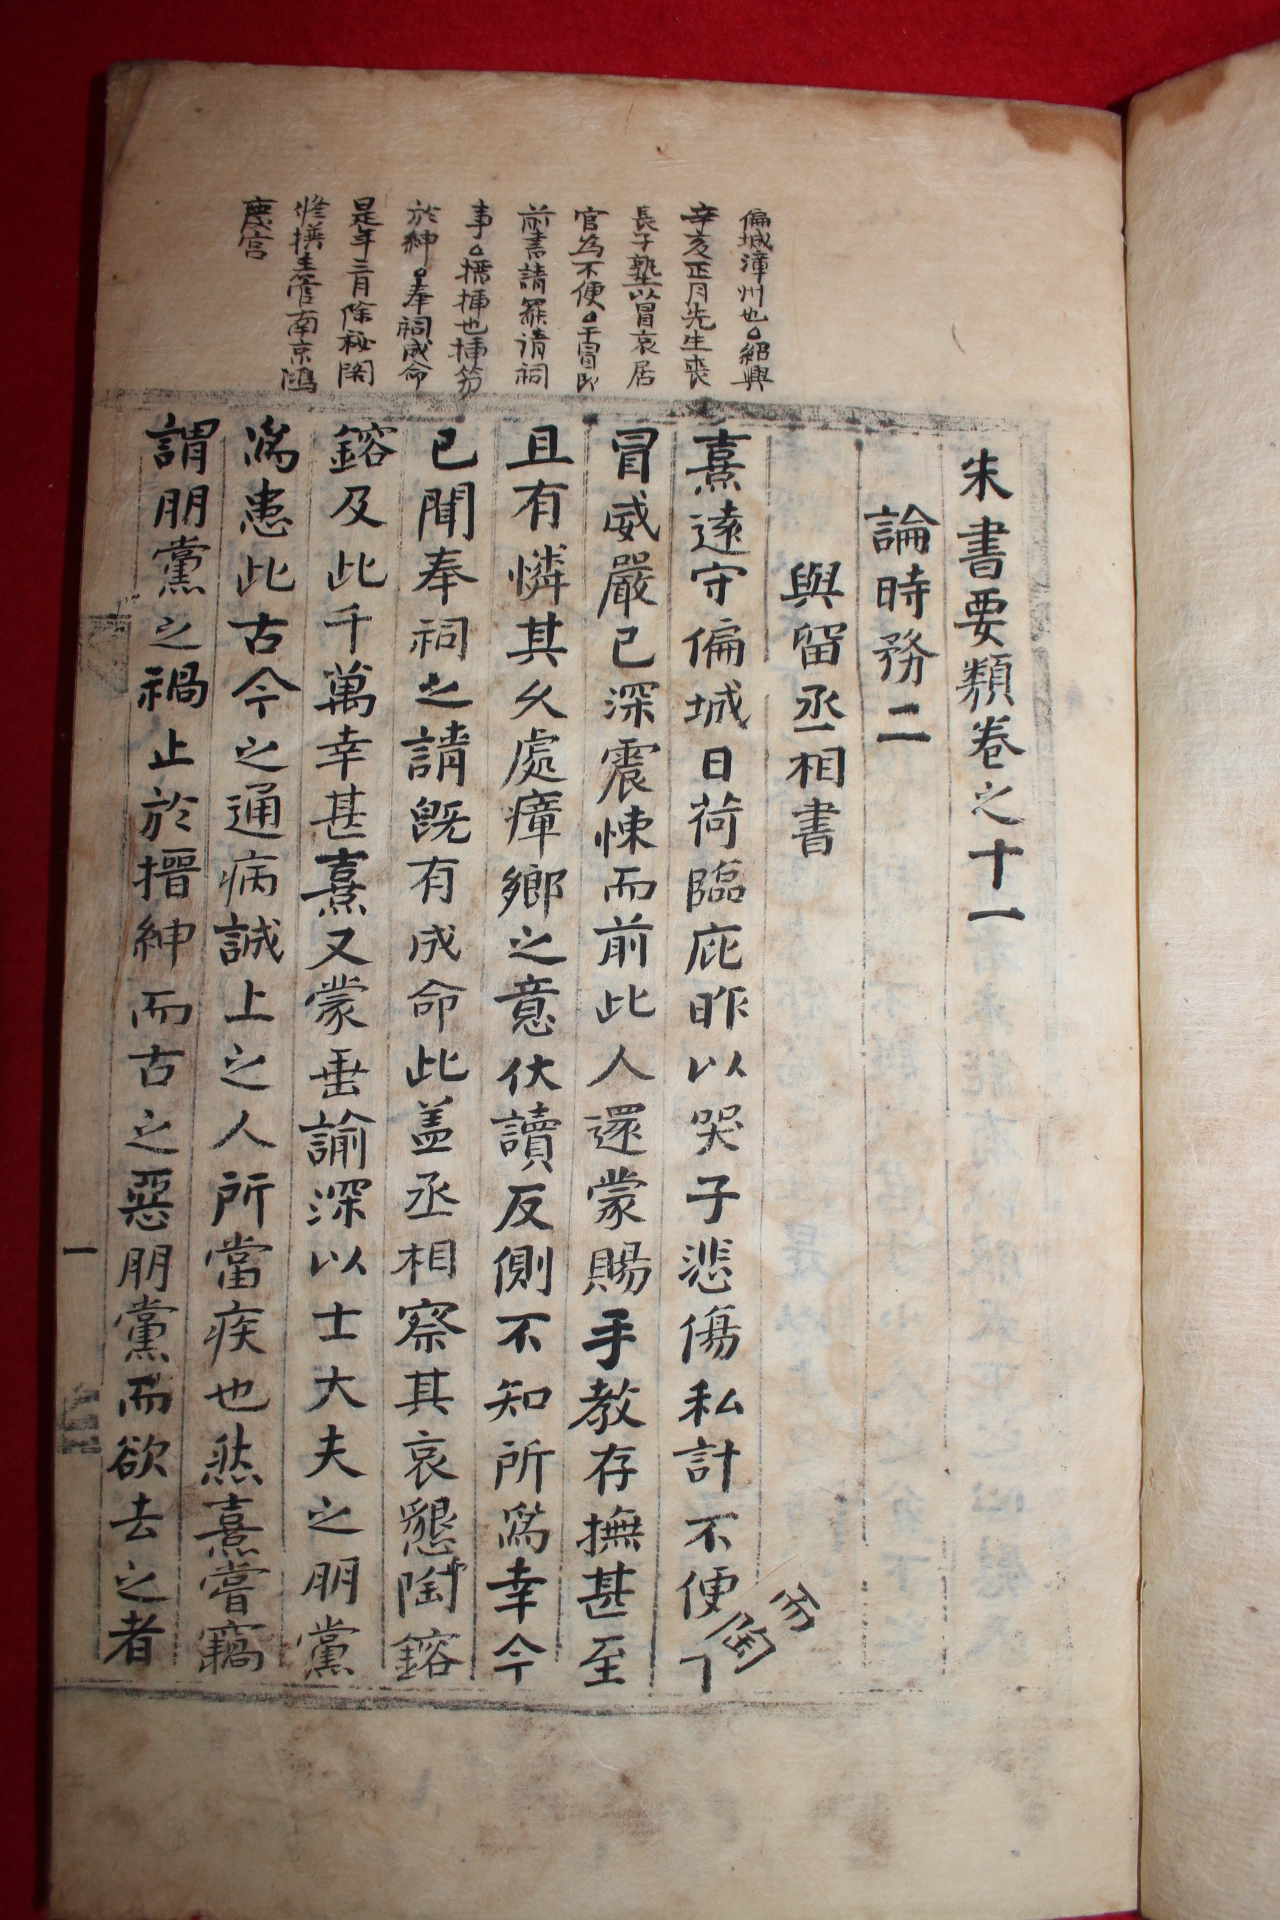 朱書要類卷之十一
論時務二
與留丞相書
熹遠守偏城日荷臨庇昨以哭子悲傷私計不便
冒威嚴已深震悚而前此人還蒙賜手教存撫甚至
且有憐其久處瘴鄉之意伏讀反側不知所爲幸今
已聞奉祠之請旣有成命此盖丞相察其哀懇陶鎔
鎔及此千萬幸甚熹又蒙垂諭深以士大夫之朋黨
爲患此古今之通病誠上之人所當疾也然熹嘗竊
謂朋黨之禍止於搢紳而古之惡朋黨而欲去之者
而
陶
一
偏城漳州也紹興
辛亥正月先生喪
長子塾以冒哀居
官為不便干冒即
前書請罷請祠
事搢揷也揷笏
於紳奉祠成命
是年三月除秘閣
修撰主管南京鴻
慶宮